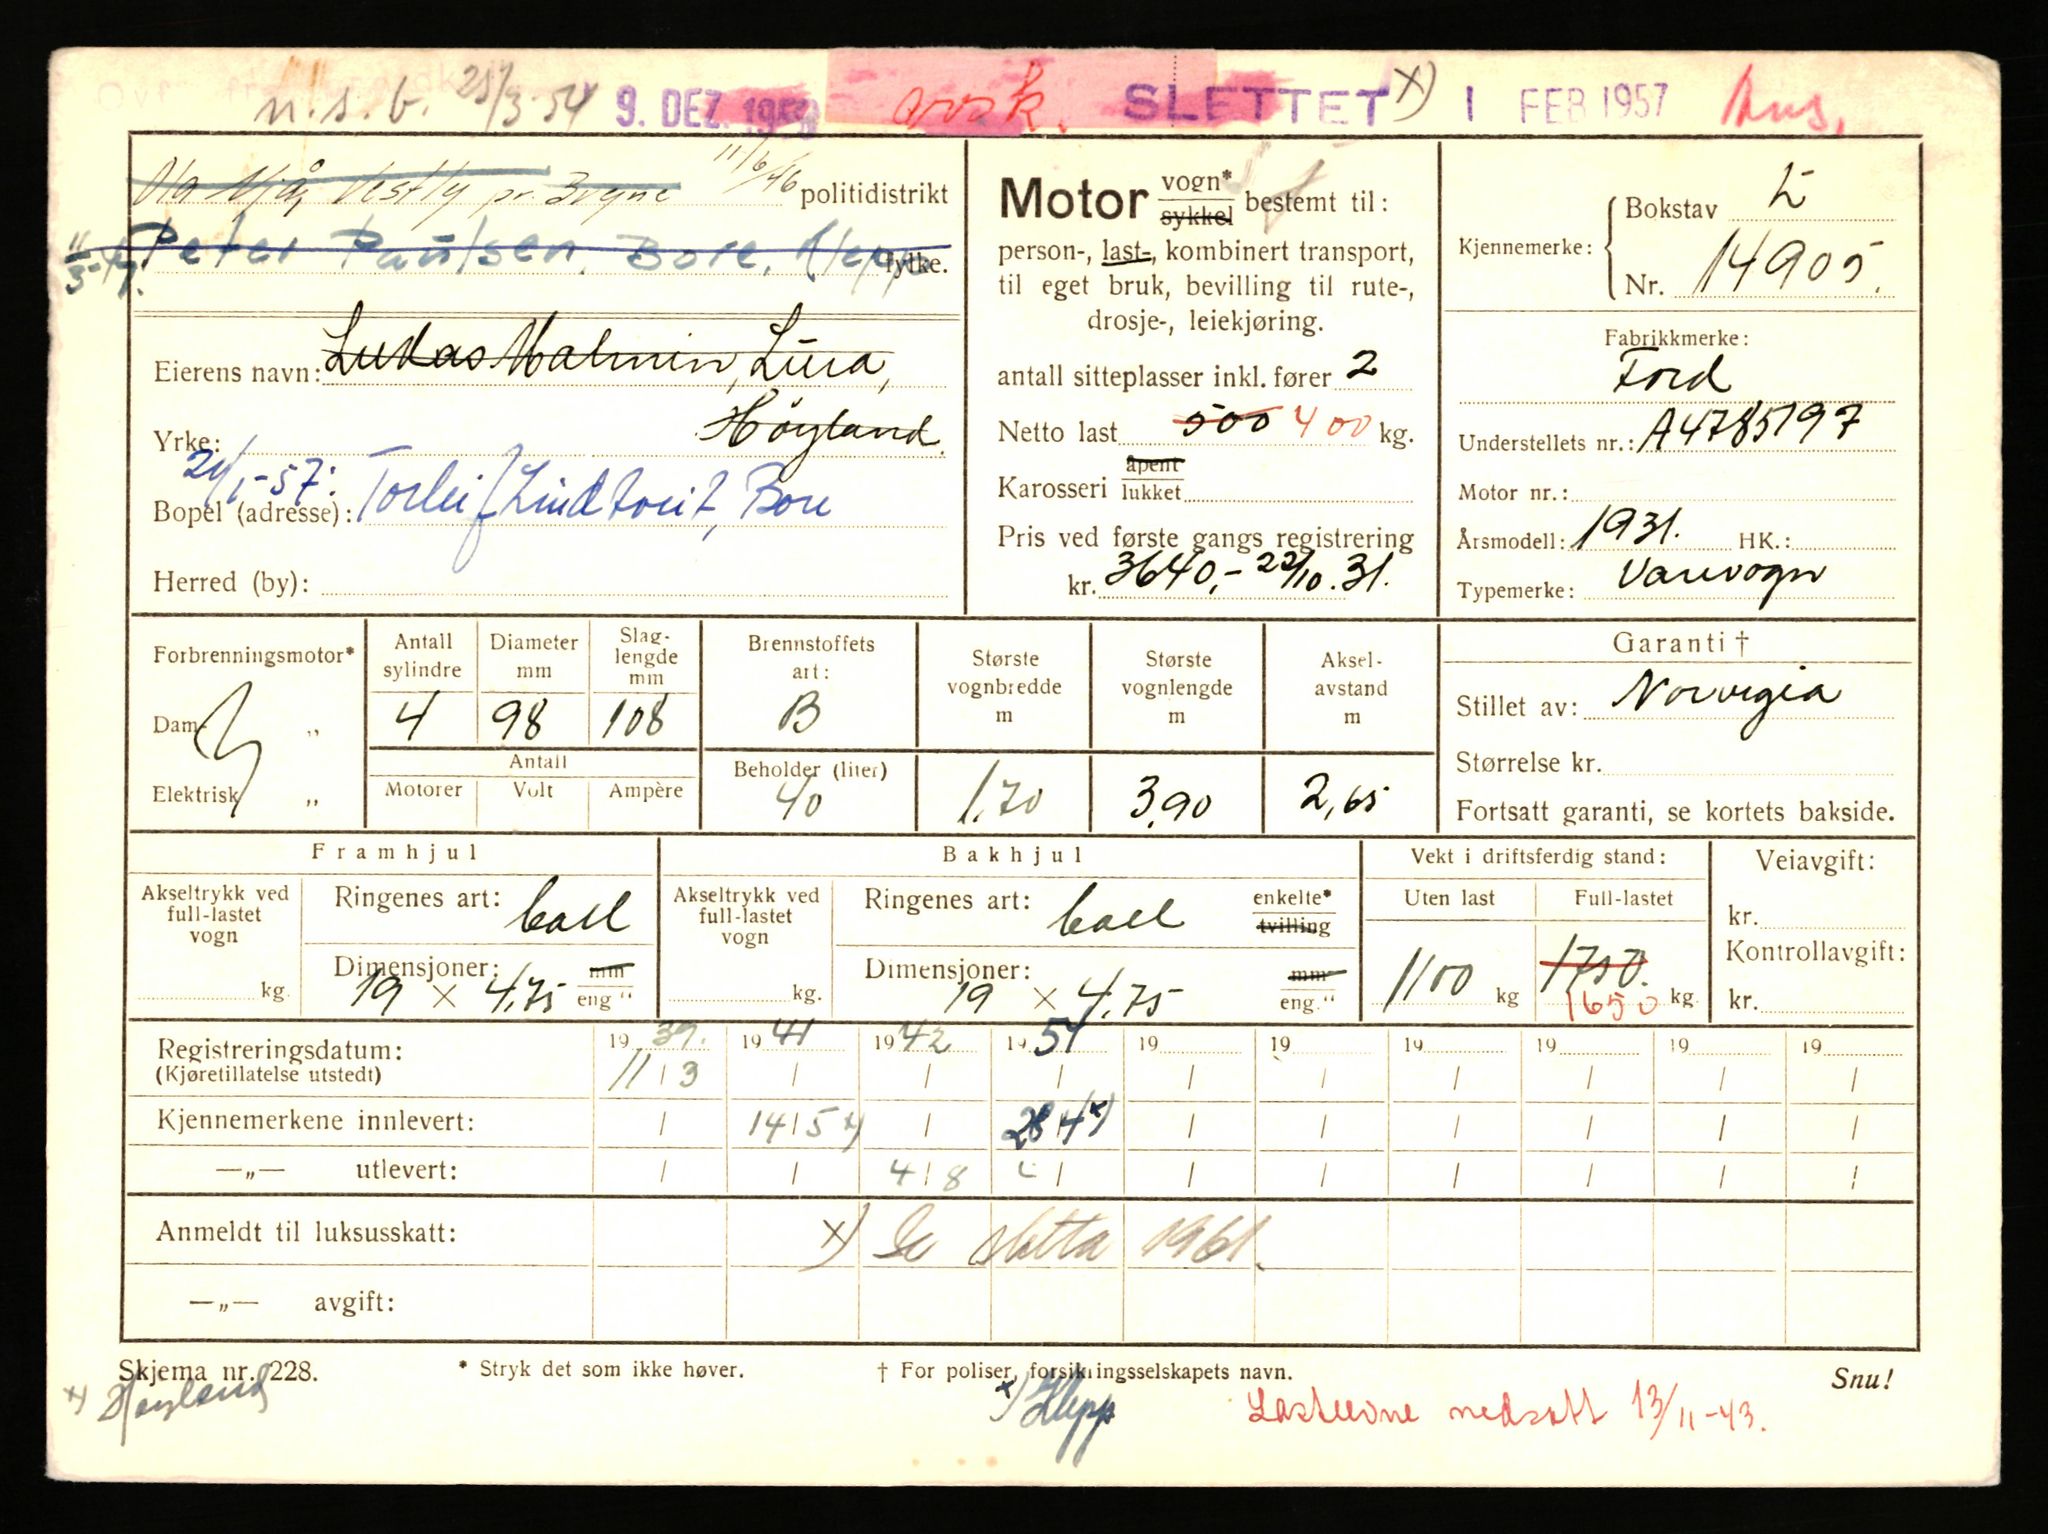 n.s.b. 25/3-54 9. DEZ. avsk. SLETTET x) 1 FEB 1957
Vestly pr. 11/6/46 politidistrikt
11/3- Peter Paulsen, Bore, Klepp fylke.
Eierens navn: Lukas Malmin, Lura,
Yrke: Høyland.
21/1-57:
Bopel (adresse): Torleif Lindtveit, Bore
Herred (by):
Motor vogn* sykkel bestemt til:
person-, last-, kombinert transport,
til eget bruk, bevilling til rute-,
drosje-, leiekjøring.
antall sitteplasser inkl. fører 2
Netto last 500 400 kg.
Karosseri åpent lukket
Pris ved første gangs registrering
kr. 3640,- 22/10.31.
Kjennemerke: Bokstav L
Nr. 14905.
Fabrikkmerke:
Ford
Understellets nr.: A4785197
Motor nr.:
Årsmodell: 1931. HK.:
Typemerke: Varevogn
Forbrenningsmotor*
Damp „
Elektrisk „
Antall sylindre 4
Diameter mm 98
Slaglengde mm 108
Antall
Motorer Volt Ampère
Brennstoffets art: B
Beholder (liter) 40
Største vognbredde m 1,70
Største vognlengde m 3,90
Akselavstand m 2,65
Garanti †
Stillet av: Norvegia
Størrelse kr.
Fortsatt garanti, se kortets bakside.
Framhjul
Akseltrykk ved full-lastet vogn kg.
Ringenes art: ball
Dimensjoner: 19 x 4,75 mm eng "
Bakhjul
Akseltrykk ved full-lastet vogn kg.
Ringenes art: ball enkelte* tvilling
Dimensjoner: 19 x 4,75 mm eng."
Vekt i driftsferdig stand:
Uten last Full-lastet
1100 kg 1750. 1650 kg.
Veiavgift:
kr.
Kontrollavgift:
kr.
Registreringsdatum: 19 39. 19 41 19 42 19 54 19 19 19 19 19 19
(Kjøretillatelse utstedt) 11 / 3
Kjennemerkene innlevert: 14/5 x) 28/4 x)
—„— utlevert: 4/8
Anmeldt til luksusskatt: x) Se sletta 1961.
—„— avgift:
Skjema nr. 228. * Stryk det som ikke høver. † For poliser, forsikringsselskapets navn. Snu!
x) Høyland x) Klepp Lasteevne nedsatt 13/11-43.